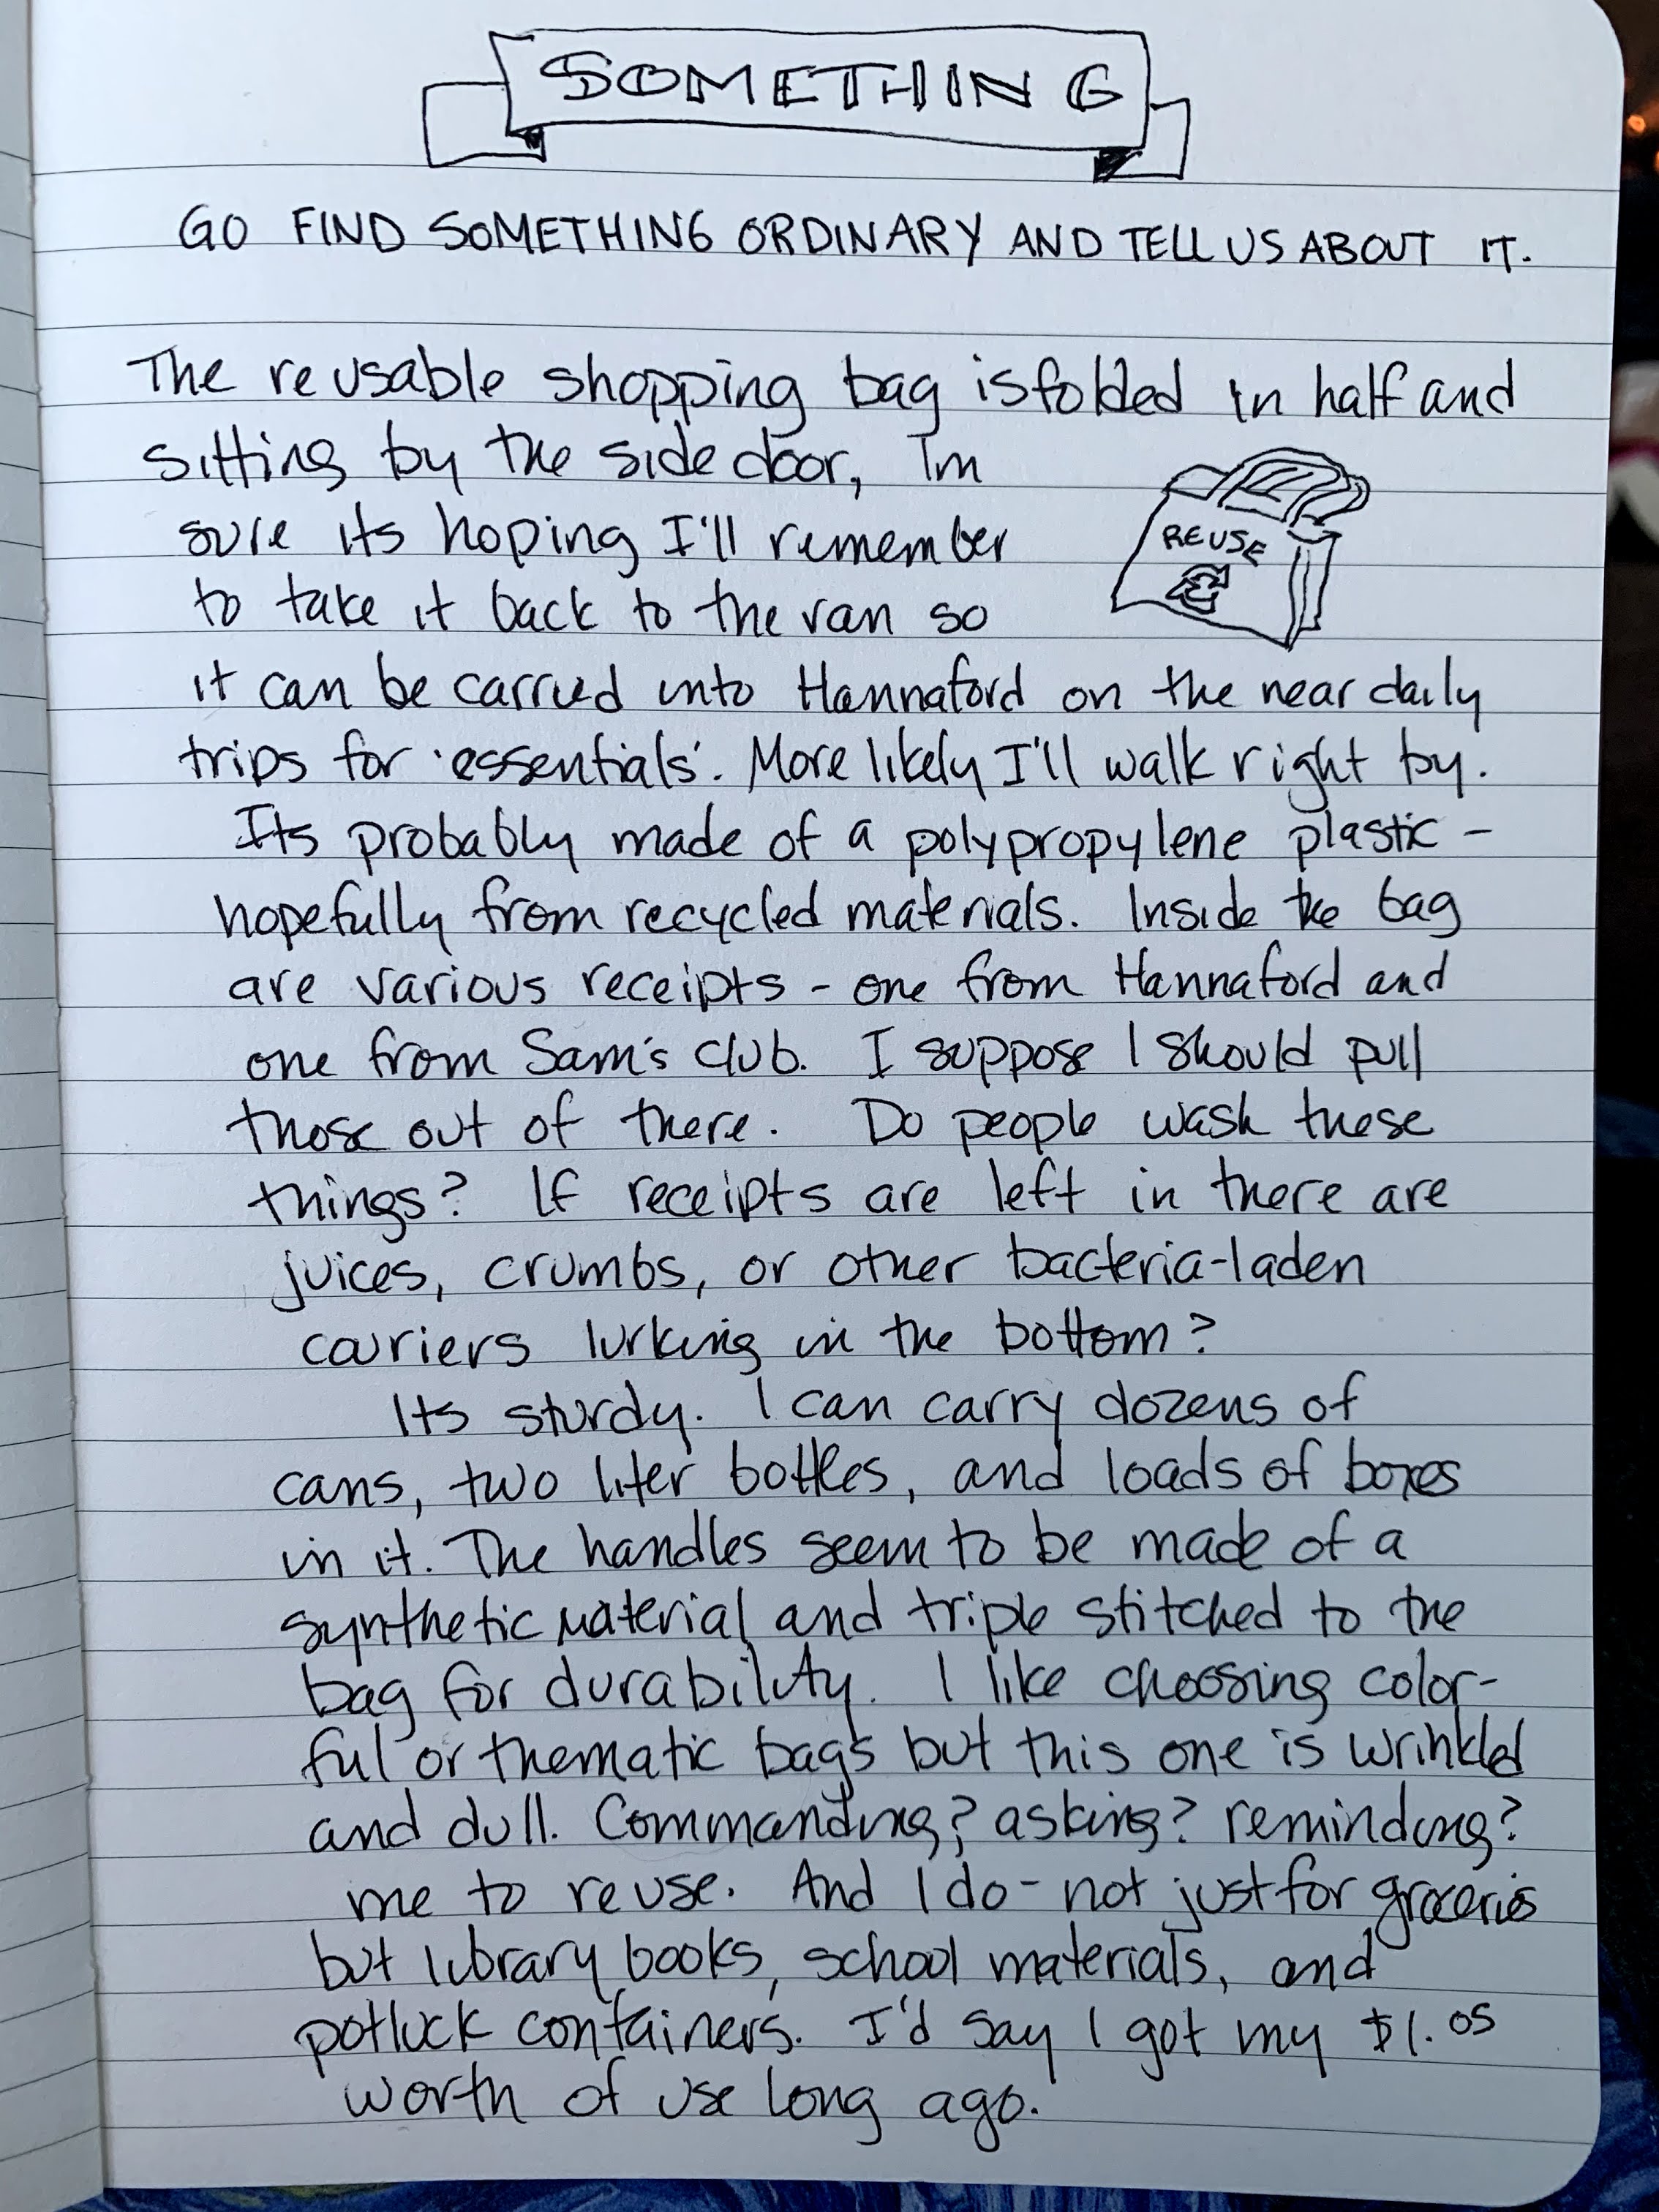 SOMETHING
GO FIND SOMETHING ORDINARY AND TELL US ABOUT IT.
The reusable shopping bag is folded in half and
sitting by the side door, Im
sure its hoping I'll remember
to take it back to the van so
REUSE
it can be carried into Hannaford on the near daily
trips for 'essentials'. More likely I'll walk right by.
Its probably made of a polypropylene plastic -
hopefully from recycled materials. Inside the bag
are various receipts - one from Hannaford and
one from Sam's Club. I suppose I should pull
those out of there. Do people wash these
things? If receipts are left in there are
juices, crumbs, or other bacteria-laden
couriers lurking in the bottom?
Its sturdy. I can carry dozens of
cans, two liter bottles, and loads of boxes
in it. The handles seem to be made of a
synthetic material and triple stitched to the
bag for durability. I like choosing color-
ful or thematic bags but this one is wrinkled
and dull. Commanding? asking? reminding?
me to reuse. And I do - not just for groceries
but library books, school materials, and
potluck containers. I'd say I got my $1.05
worth of use long ago.